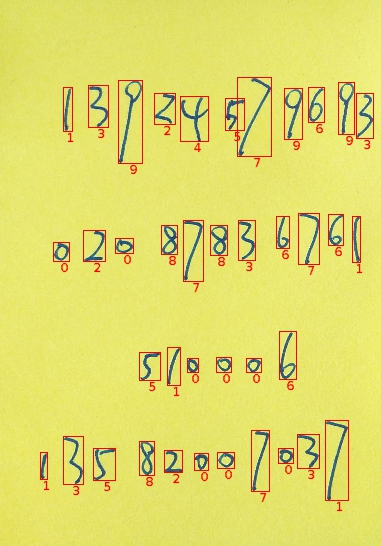 139 2457 9693
1 3 9 2 4 5 7 9 6 9 3
020 8783 6761
0 2 0 8 7 8 3 6 7 6 1
510006
5 1 0 0 0 6
135 8200 7037
1 3 5 8 2 0 0 7 0 3 1